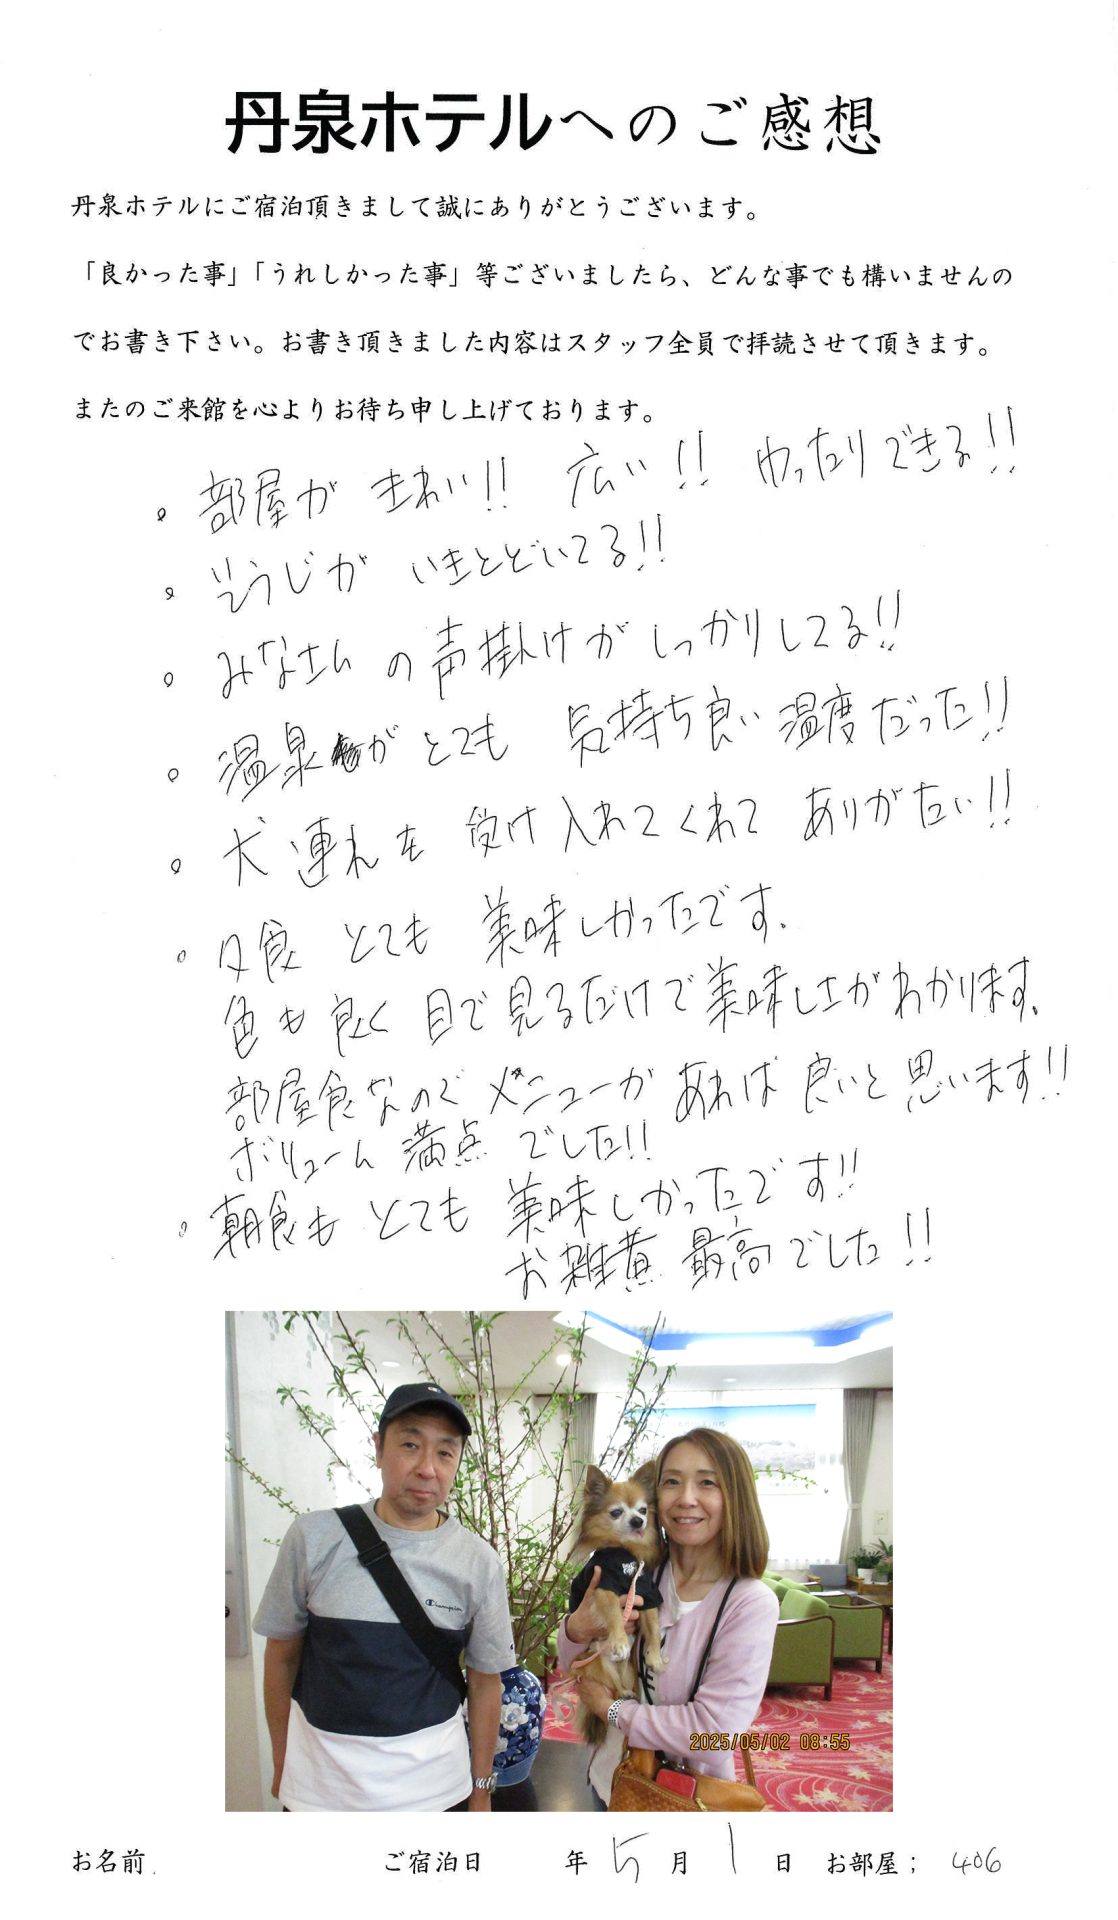 丹泉ホテルへのご感想
丹泉ホテルにご宿泊頂きまして誠にありがとうございます。
「良かった事」「うれしかった事」等ございましたら、どんな事でも構いませんの
でお書き下さい。お書き頂きました内容はスタッフ全員で拝読させて頂きます。
またのご来館を心よりお待ち申し上げております。
。部屋が きれい!! 広い!! ゆったりできる!!
。そうじが いきとどいてる!!
。みなさんの声掛けがしっかりしてる!!
。温泉がとても 気持ち良い温度だった!!
。犬連れを受け入れてくれて ありがたい!!
。夕食 とても 美味しかったです.
色も良く目で見るだけで美味しさがわかります.
部屋食なので メニューが あれば 良いと思います!!
ボリューム 満点 でした!!
。朝食も とても 美味しかったです!!
お雑煮 最高でした!!
Champion
2025/05/02 08:55
お名前 ご宿泊日 年 5 月 1 日 お部屋; 406